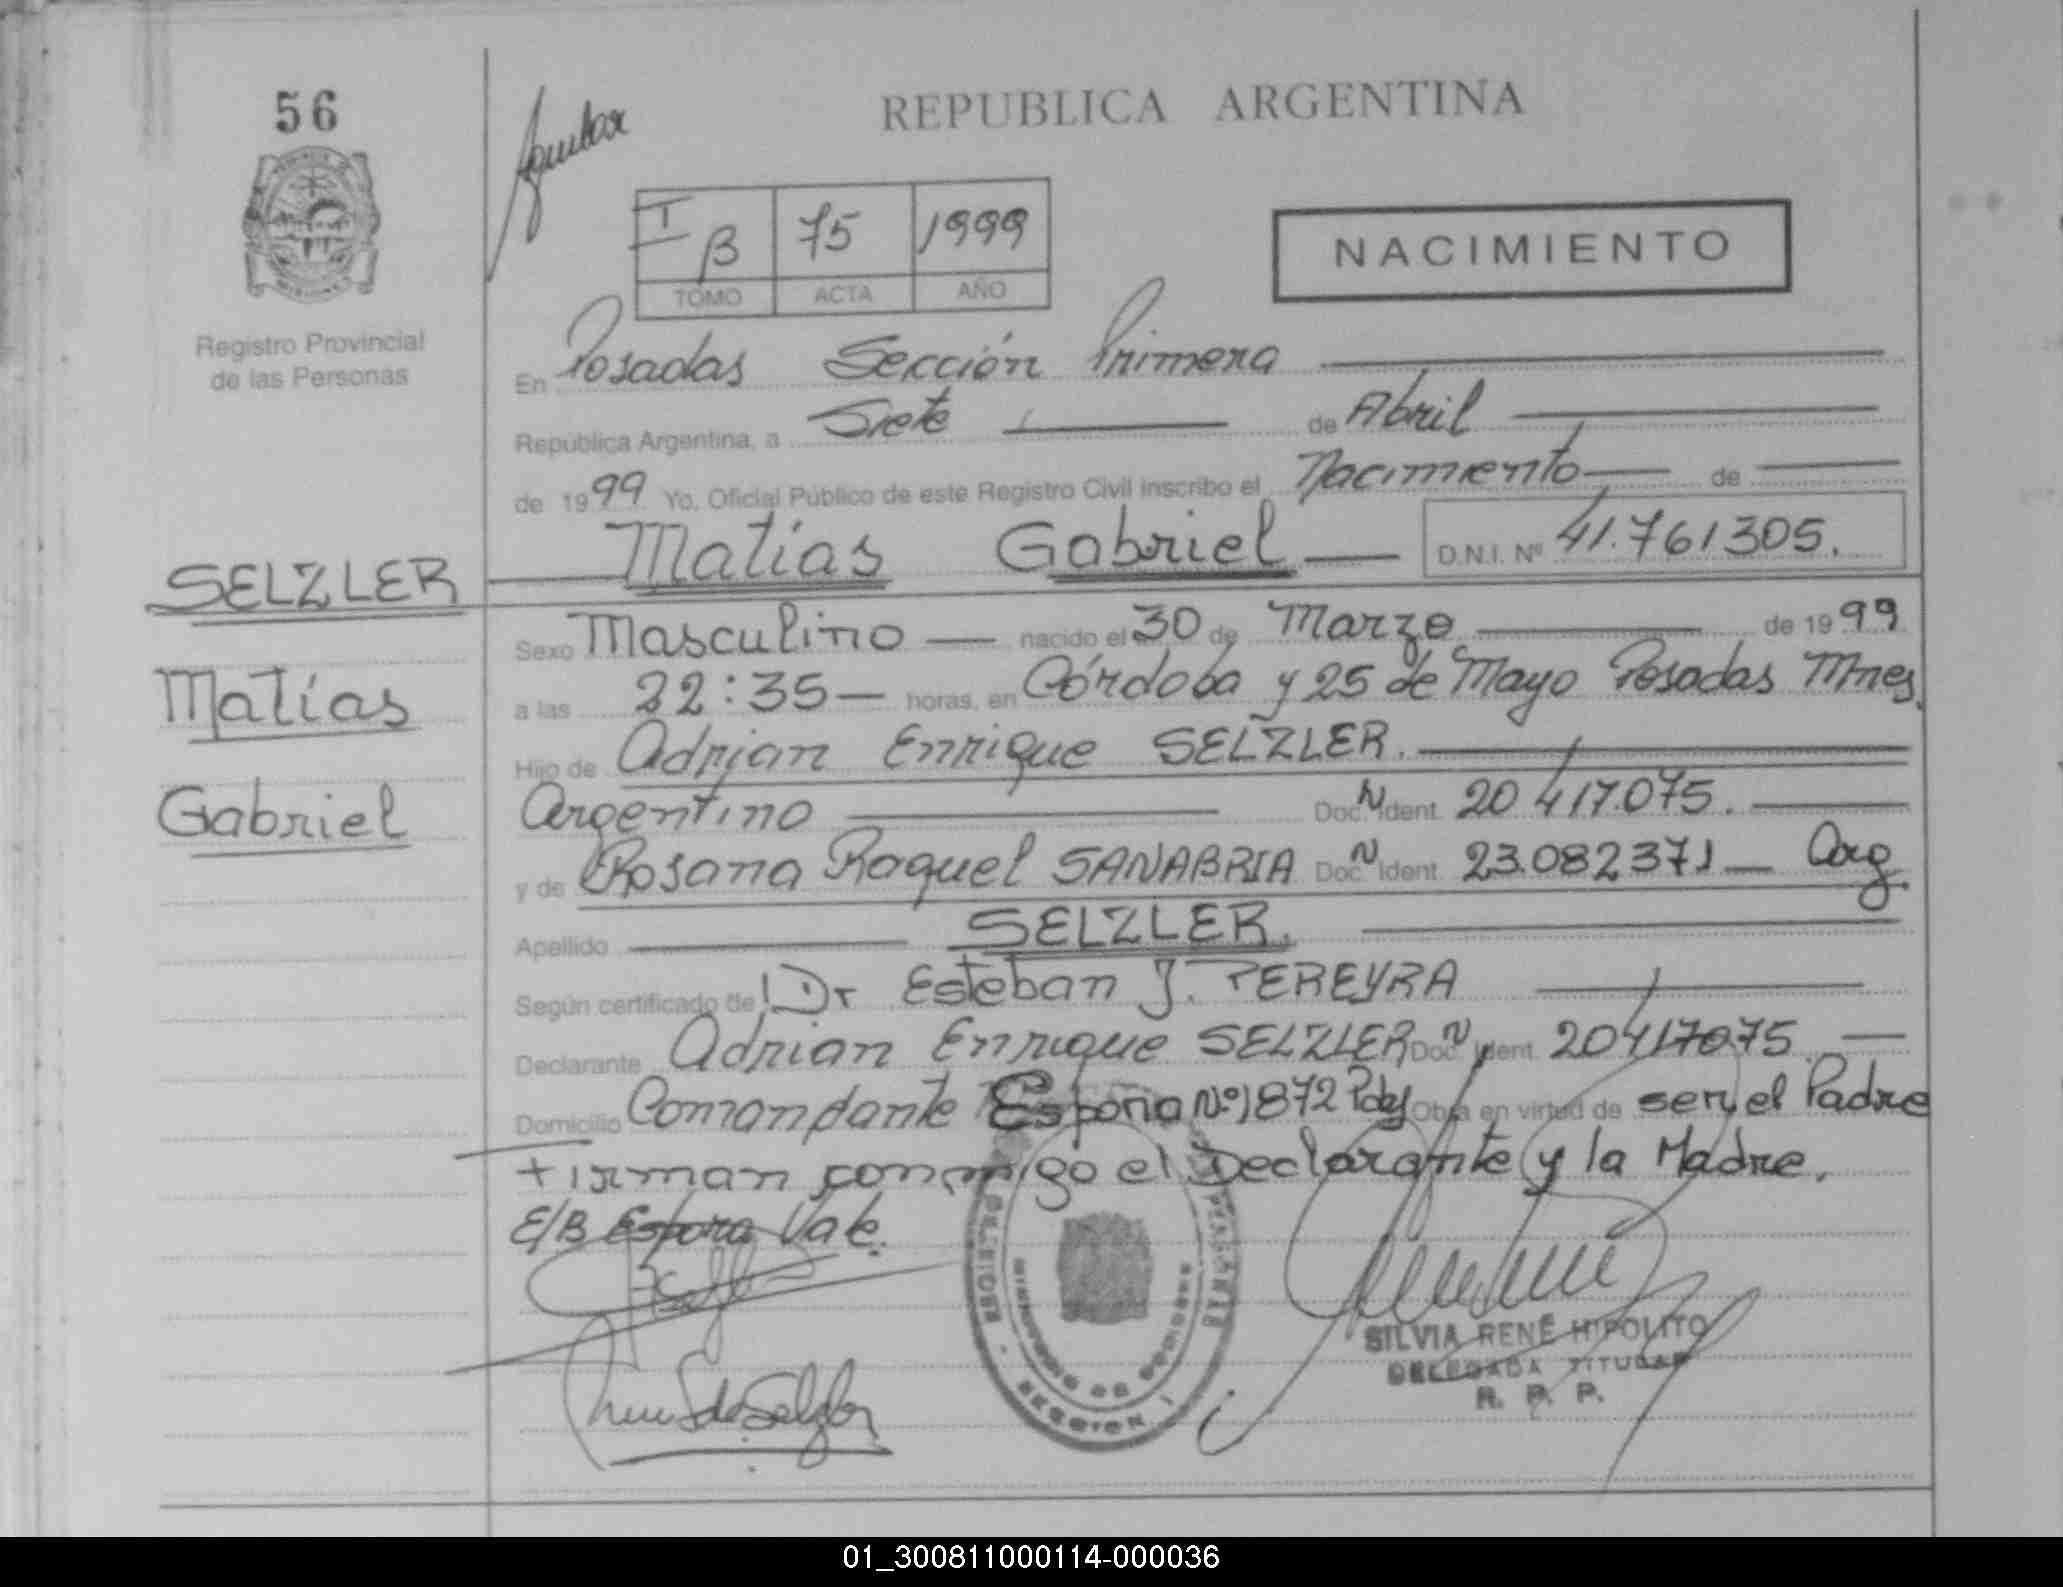 56
REPUBLICA ARGENTINA
I B 75 1999
TOMO ACTA AÑO
NACIMIENTO
Registro Provincial
de las Personas
En Posadas Sección Primera
República Argentina, a Siete de Abril
de 1999 Yo, Oficial Público de este Registro Civil inscribo el Nacimiento de
Matías Gabriel D.N.I. Nº 41.761305.
SELZLER
Matías
Gabriel
Sexo Masculino nacido el 30 de Marzo de 1999
a las 22:35 horas, en Córdoba y 25 de Mayo Posadas Mnes.
Hijo de Adrian Enrique SELZLER.
Argentino Doc. N Ident. 20.417.075.
y de Rosana Raquel SANABRIA Doc. N Ident. 23.082371 Arg.
Apellido SELZLER.
Según certificado de Dr Esteban J. PEREYRA
Declarante Adrian Enrique SELZLER Doc. N Ident. 20417075
Domicilio Comandante Espora Nº 1872 Pdas Obra en virtud de ser el Padre
Firman conmigo el Declarante y la Madre.
E/B Espora Vale.
SECCION I
SILVIA RENÉ HIPOLITO
DELEGADA TITULAR
R. P. P.
01_300811000114-000036